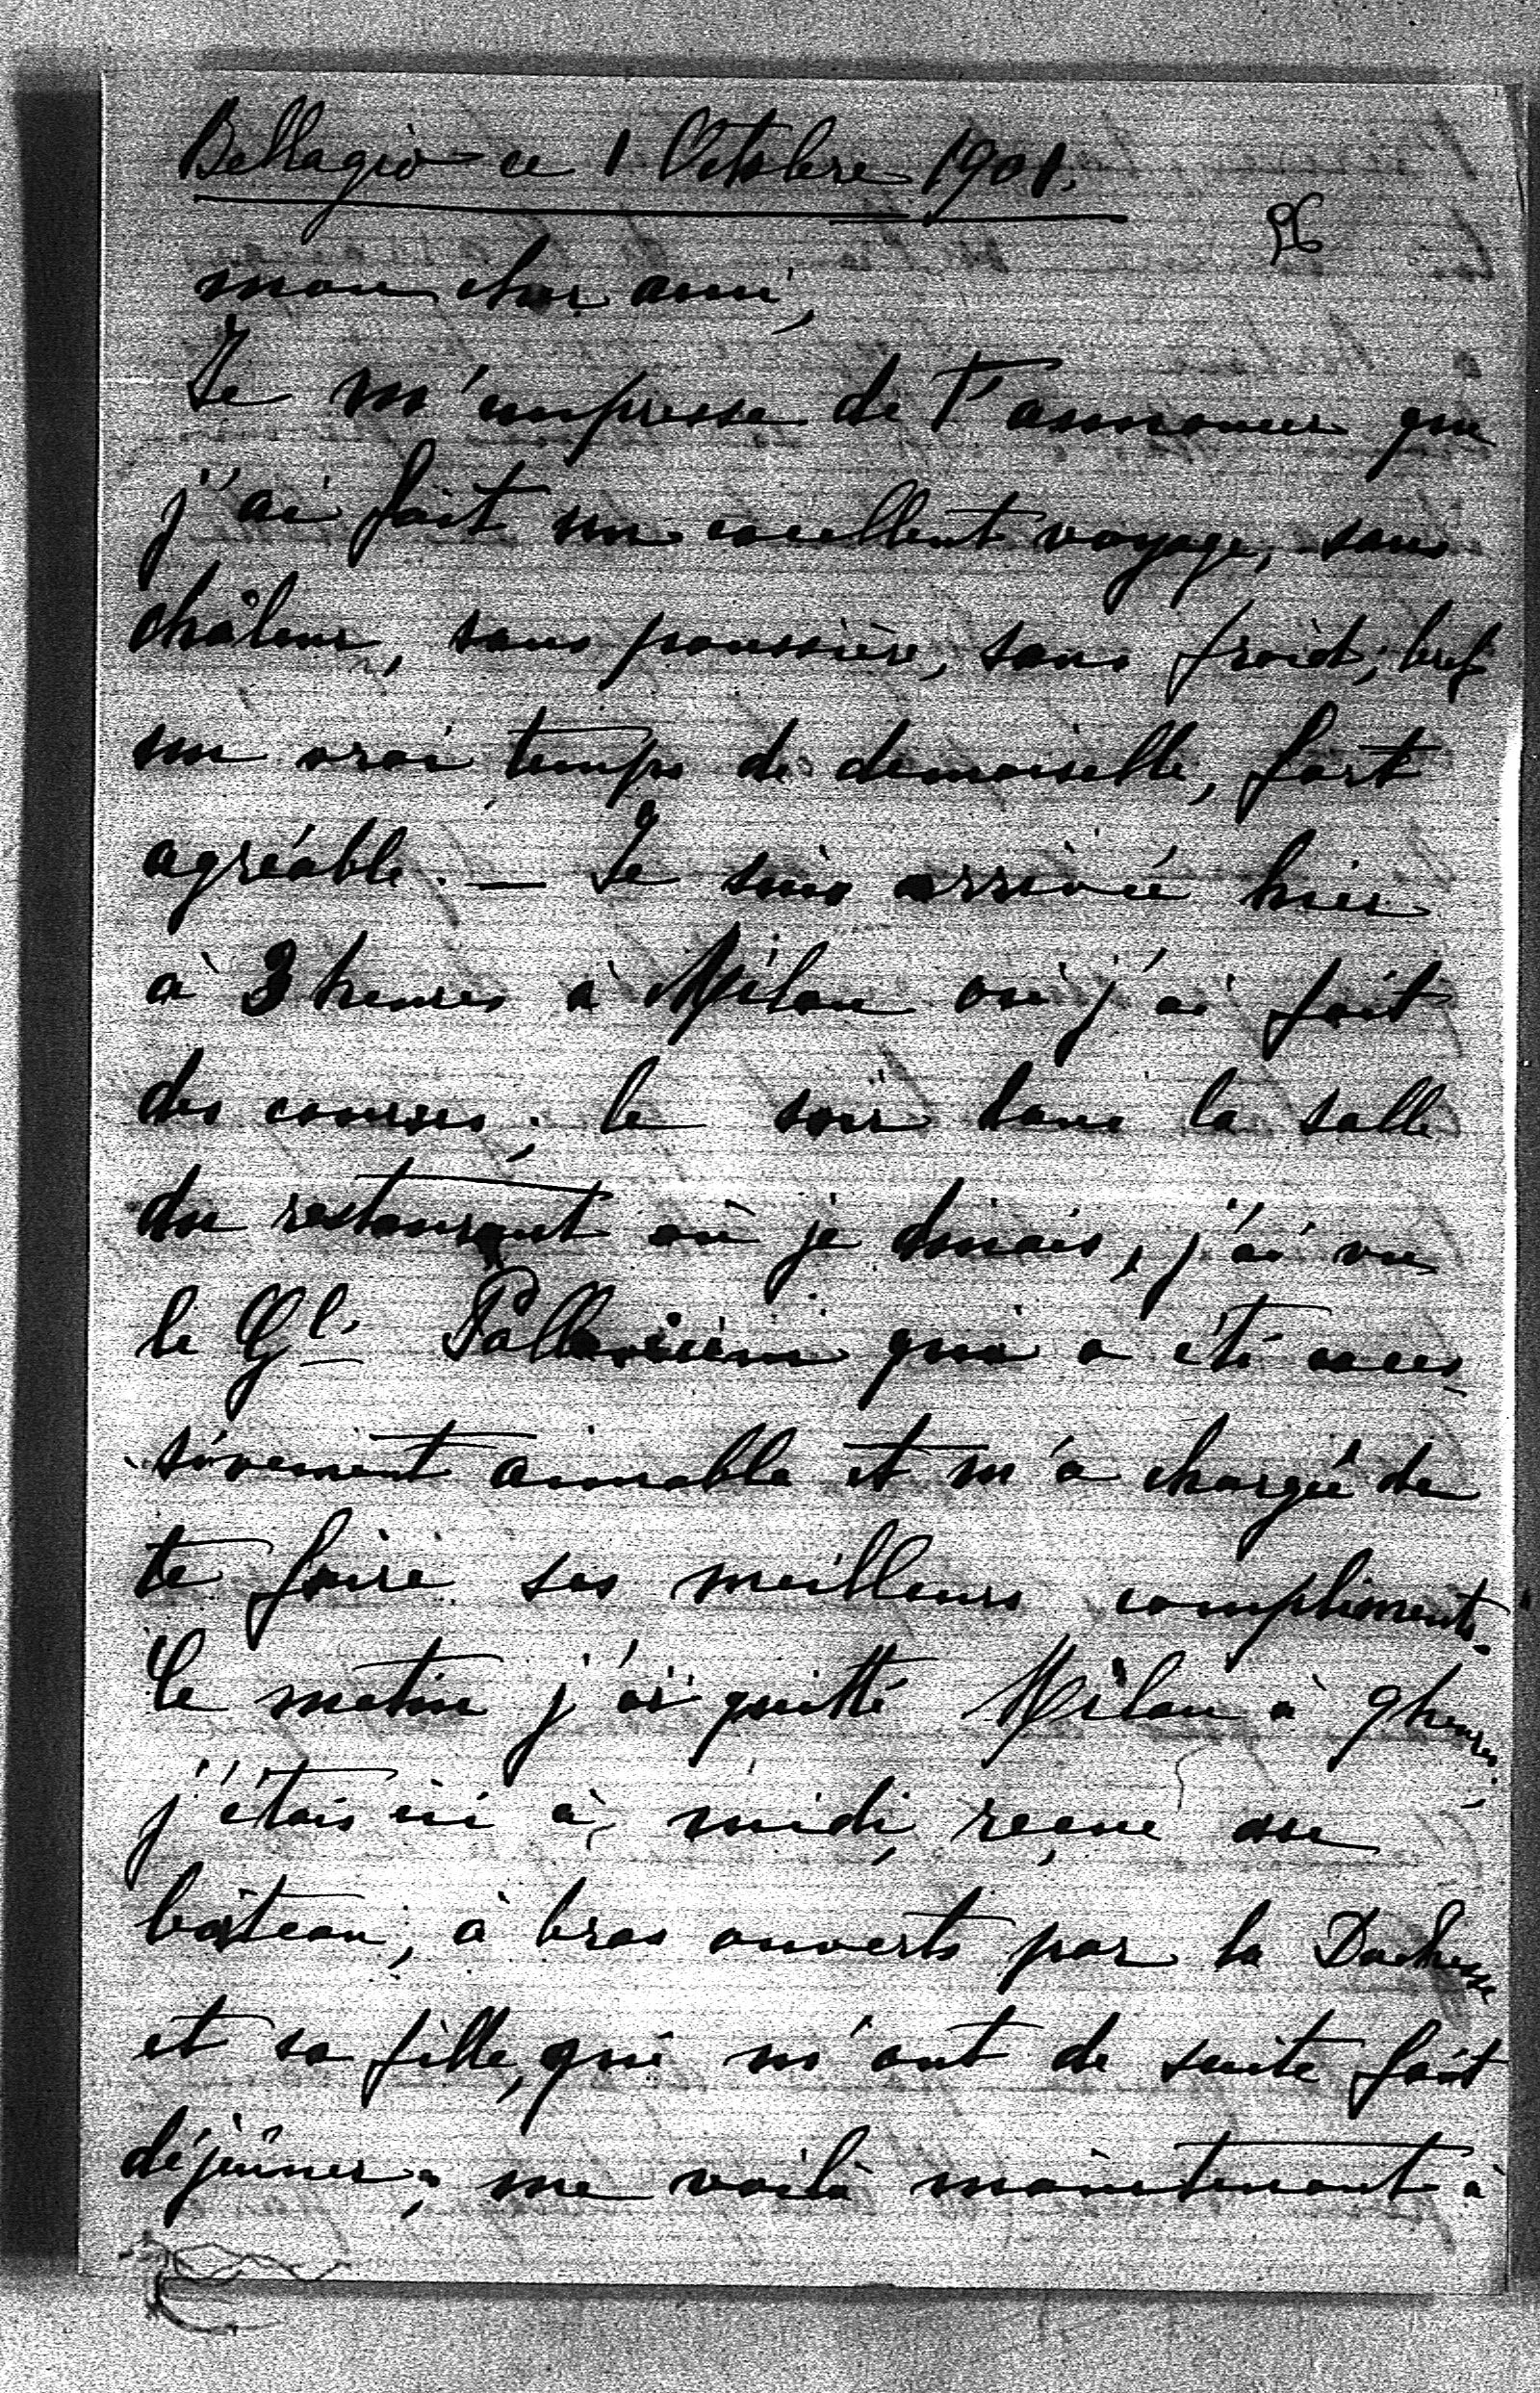 Bellagio ce 1 Octobre 1901.
96
mon cher ami,
Je m'empresse de t'annoncer que
j'ai fait un excellent voyage, sans
châleur, sans poussière, sans froid, bref
un vrai temps de demoiselle, fort
agréable. — Je suis arrivée hier
à 3 heures à Milan où j'ai fait
des courses; le soir dans la salle
du restaurant où je dinais, j'ai vu
le Gl. Pallavicini qui a été exces-
sivement aimable et m'a chargée de
te faire ses meilleurs compliments.
Ce matin j'ai quitté Milan à 9 heures,
j'étais ici à midi, reçue au
bateau, à bras ouverts par la Duchesse
et sa fille, qui m'ont de suite fait
déjeûner; me voilà maintenant à